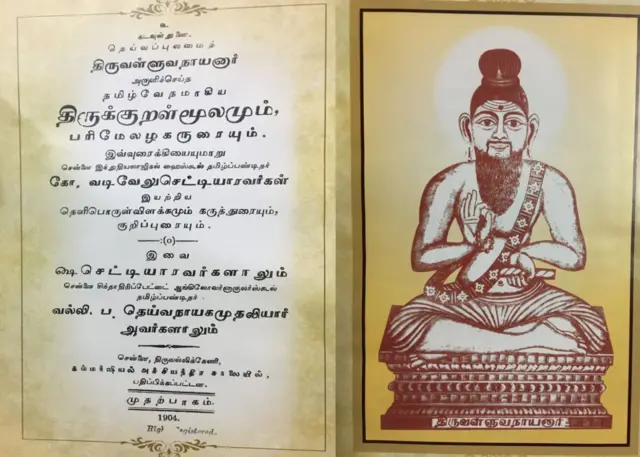 உ
கடவுள் துணை.
தெய்வப்புலமைத்
திருவள்ளுவநாயனார்
அருளிச்செய்த
தமிழ்வேதமாகிய
திருக்குறள்மூலமும்,
பரிமேலழகருரையும்.
இவ்வுரைக்கியையுமாறு
சென்னை இந்துதியலாஜிகல் ஹைஸ்கூல் தமிழ்ப்பண்டிதர்
கோ. வடிவேலுசெட்டியாரவர்கள்
இயற்றிய
தெளிபொருள்விளக்கமும் கருத்துரையும்,
குறிப்புரையும்.
—:(o)—
இவை
ஷை செட்டியாரவர்களாலும்
சென்னை சிந்தாதிரிப்பேட்டை
தமிழ்ப்பண்டிதர்
வல்லி. ப. தெய்வநாயகமுதலியார்
அவர்களாலும்
சென்னை, திருவல்லிக்கேணி,
கம்மர்ஷியல் அச்சியந்திர சாலையில்,
பதிப்பிக்கப்பட்டன.
முதற்பாகம்.
1904.
திருவள்ளுவநாயனார்